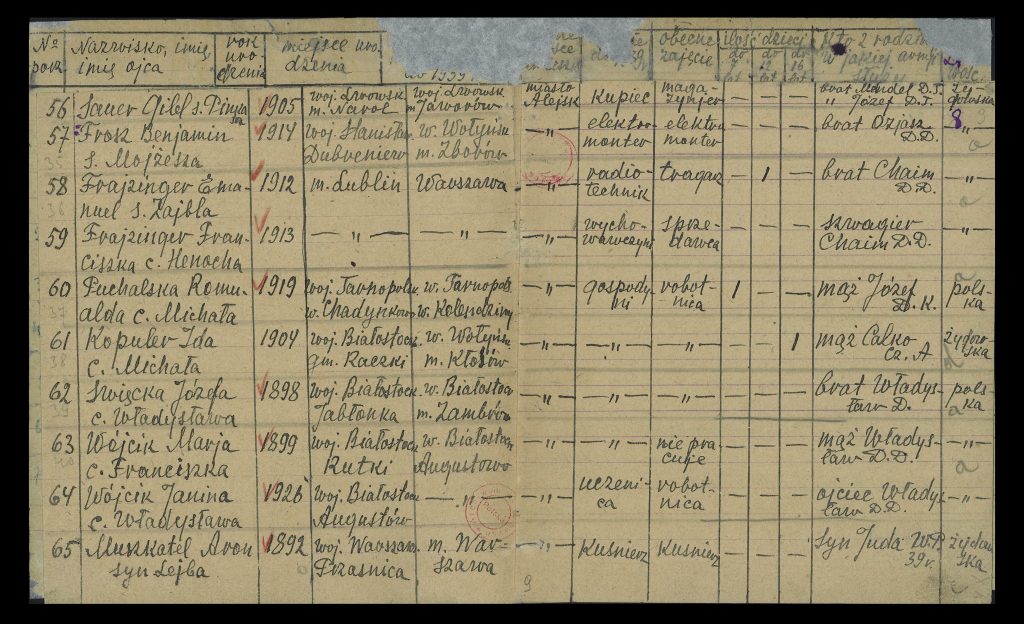 № porz. Nazwisko, imię, imię ojca rok urodzenia miejsce urodzenia obecne zajęcie ilość dzieci do 7 lat do 12 lat do 16 lat Kto z rodziny w jakiej armji
56 Sauer Gibel s. Pinkasa 1905 woj. Lwowsk m. Narol woj. Lwowsk m. Jaworów miasto Alejsk kupiec magazynjer — — — brat Mendel D.T. " Józef D.T. żydowska
57 Frosz Benjamin s. Mojżesza 1914 woj. Stanisław Dubweniew w. Wołyńsk m. Zborów —"— elektromonter elektromonter — — — brat Ozjasz D.D. —"—
58 Frajzinger Emanuel s. Fajbla 1912 m. Lublin Warszawa —"— radiotechnik tragarz — 1 — brat Chaim D.D. —"—
59 Frajzinger Franciszka c. Henocha 1913 —"— —"— —"— wychowawczyni sprzedawca — — — szwagier Chaim D.D. —"—
60 Puchalska Romualda c. Michała 1919 woj. Tarnopolsk w. Chadynkow w. Tarnopol w. Kolendziny —"— gospodyni robotnica 1 — — mąż Józef D.K. polska
61 Kopuler Ida c. Michała 1904 woj. Białostock gm. Raczki w. Wołyńsk m. Kłosów —"— —"— —"— — — 1 mąż Calko Cz. A żydowska
62 Święcka Józefa c. Władysława 1898 woj. Białostock Jabłonka w. Białostock m. Zambrów —"— —"— —"— — — — brat Władysław D. polska
63 Wójcik Marja c. Franciszka 1899 woj. Białostoc Rutki w. Białostoc Augustowo —"— —"— nie pracuje — — — mąż Władysław D.D. —"—
64 Wójcik Janina c. Władysława 1926 woj. Białostoc Augustów —"— —"— uczenica robotnica — — — ojciec Władysław D.D. —"—
65 Muszkatel Aron syn Lejba 1892 woj. Warszaw. Przasnica m. Warszawa —"— kuśnierz kuśnierz — — — syn Juda W.P. 39 r. żydowska
9